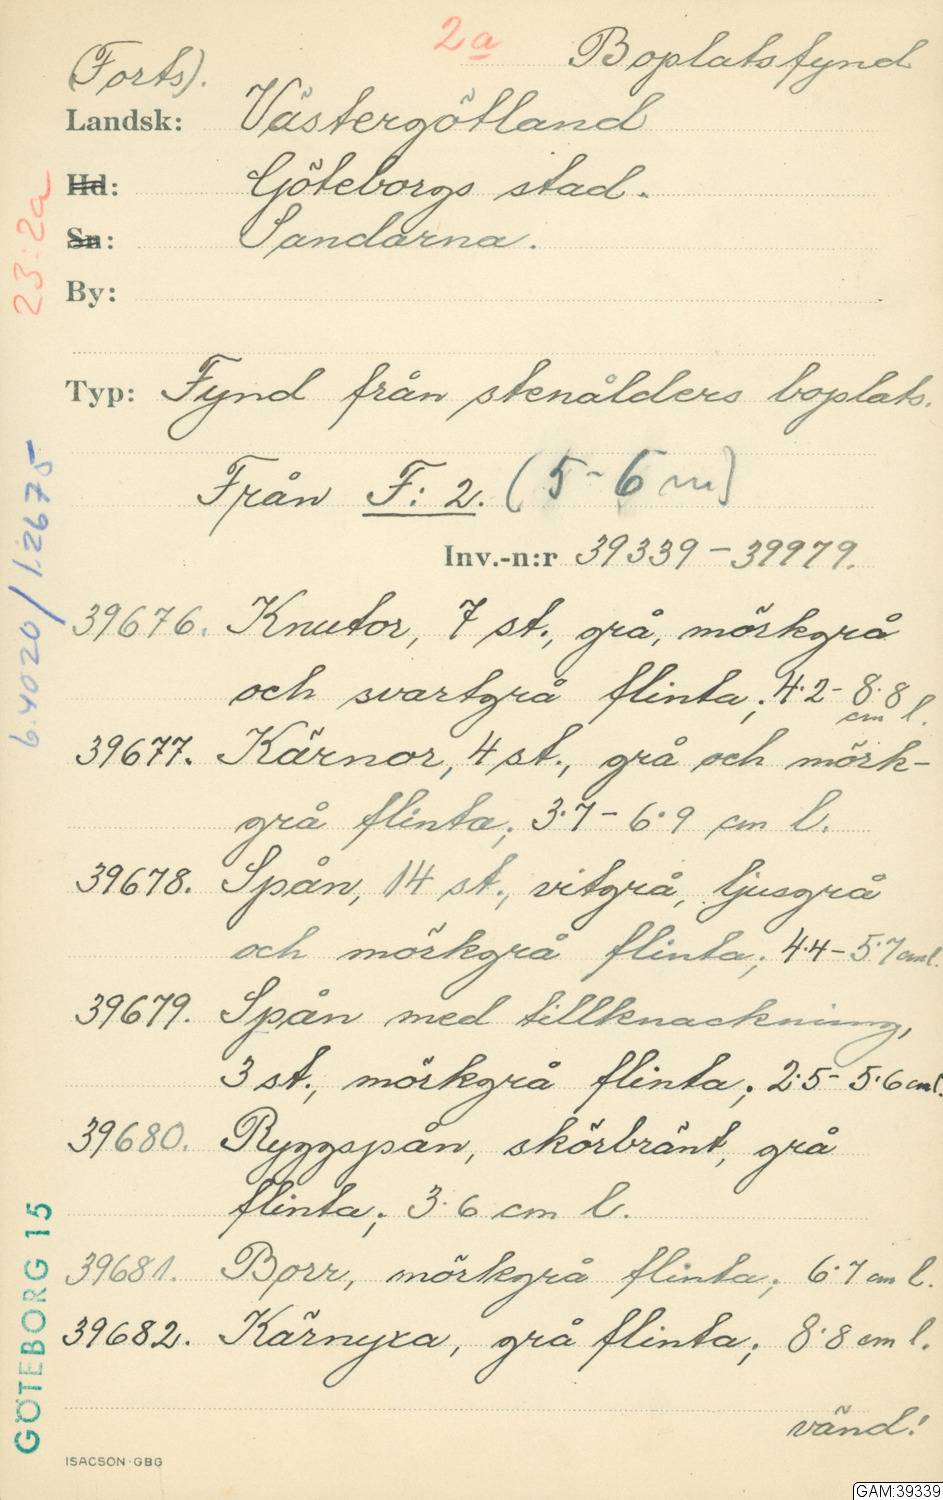 2a Boplatsfynd
(Forts).
Landsk: Västergötland
Hd: Göteborgs stad.
Sn: Sandarna.
By:
Typ: Fynd från stenålders boplats.
Från F: 2. (5-6 m)
Inv.-n:r 39339-39979.
39676. Knutor, 7 st., grå, mörkgrå
och svartgrå flinta; 4.2-8.8
cm l.
39677. Kärnor, 4 st., grå och mörk-
grå flinta; 3.7-6.9 cm l.
39678. Spån, 14 st., vitgrå, ljusgrå
och mörkgrå flinta; 4.4-5.7 cm l.
39679. Spån med tillknackning,
3 st., mörkgrå flinta; 2.5-5.6 cm l.
39680. Ryggspån, skörbränt, grå
flinta; 3.6 cm l.
39681. Borr, mörkgrå flinta; 6.7 cm l.
39682. Kärnyxa, grå flinta; 8.8 cm l.
vänd!
ISACSON·GBG
23:2a
6.4020/1:2675
GÖTEBORG 15
GAM:39339